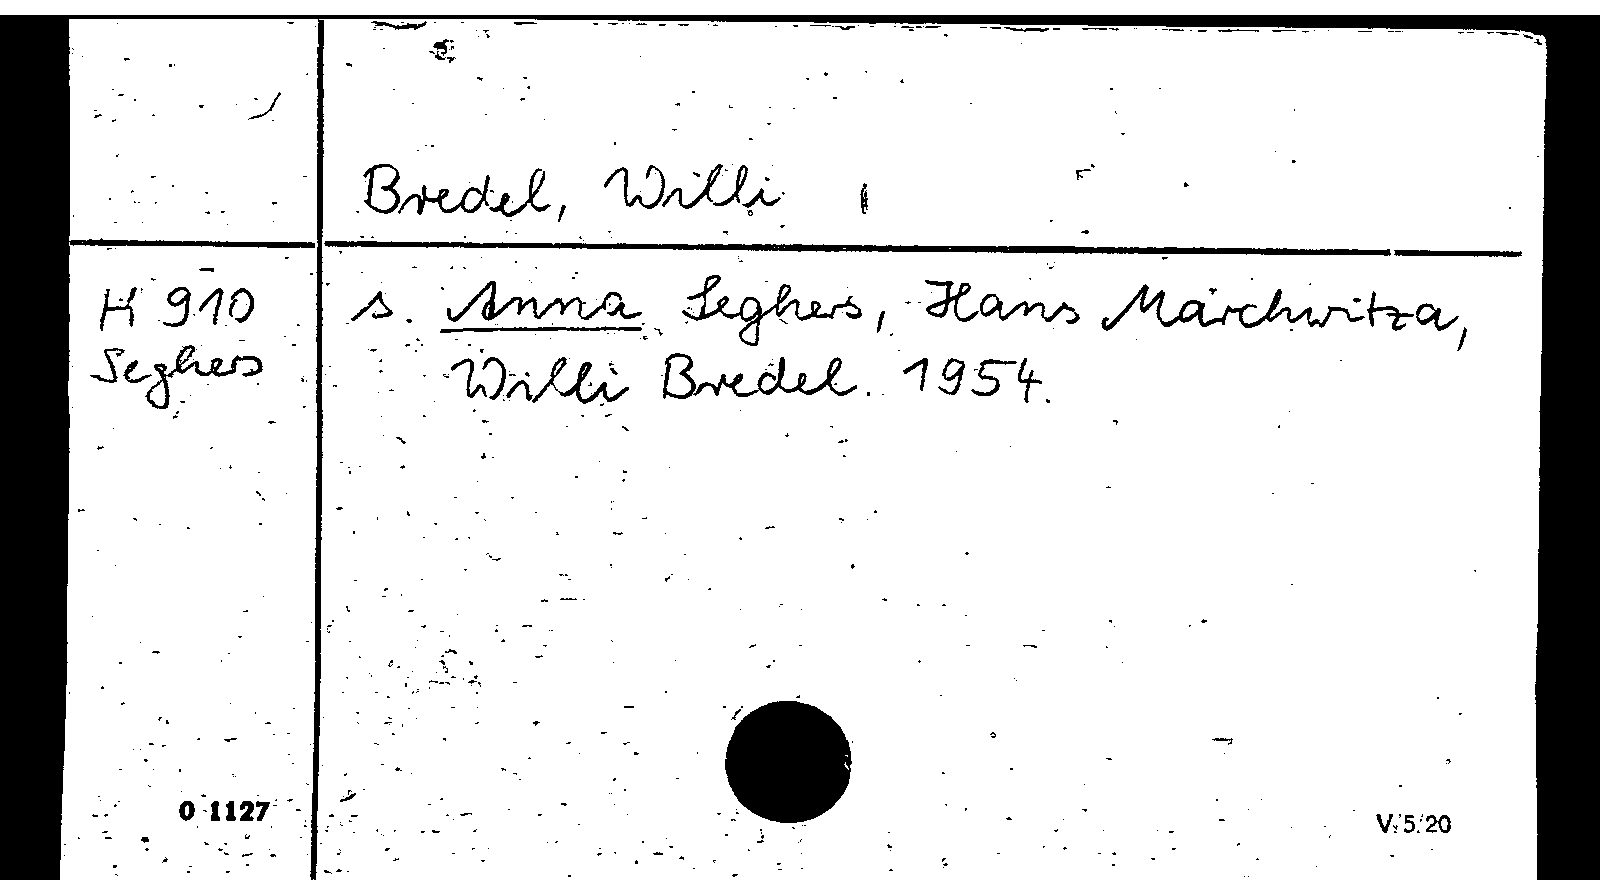 Bredel, Willi
H 910 s. Anna Seghers, Hans Marchwitza,
Seghers Willi Bredel. 1954.
O 1127 V/5/20